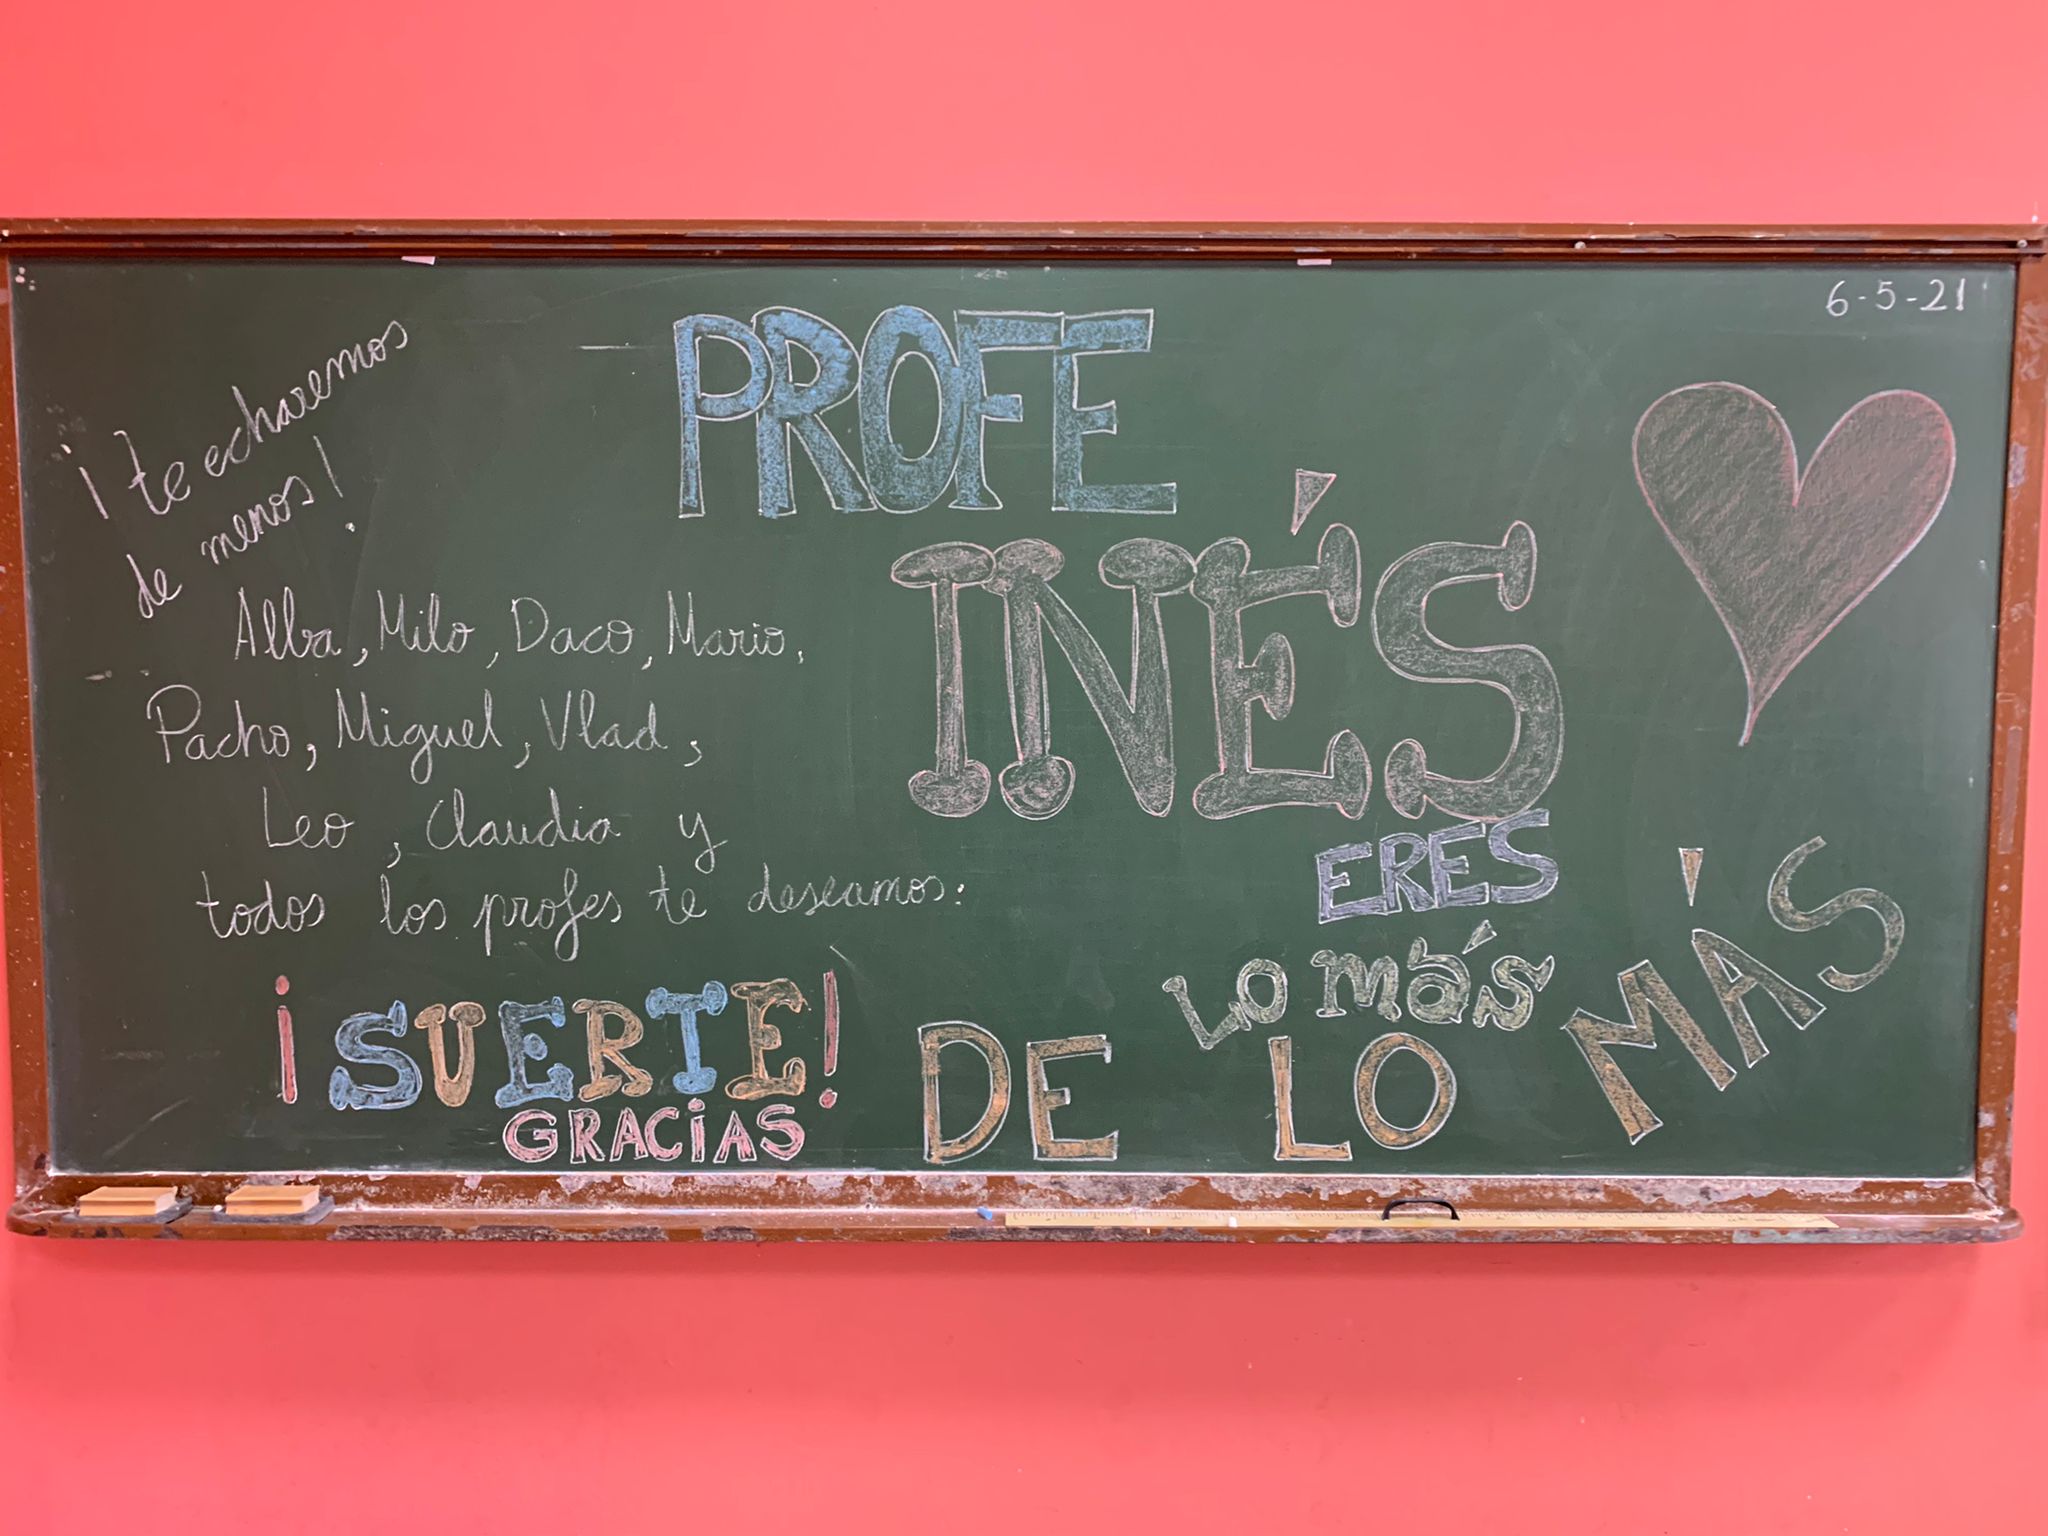 6-5-21
¡te echaremos
de menos!
Alba, Milo, Daco, Mario,
Pacho, Miguel, Vlad,
Leo, Claudia y
todos los profes te deseamos:
¡SUERTE!
GRACIAS
PROFE
INÉS
ERES
LO MÁS
DE LO MÁS